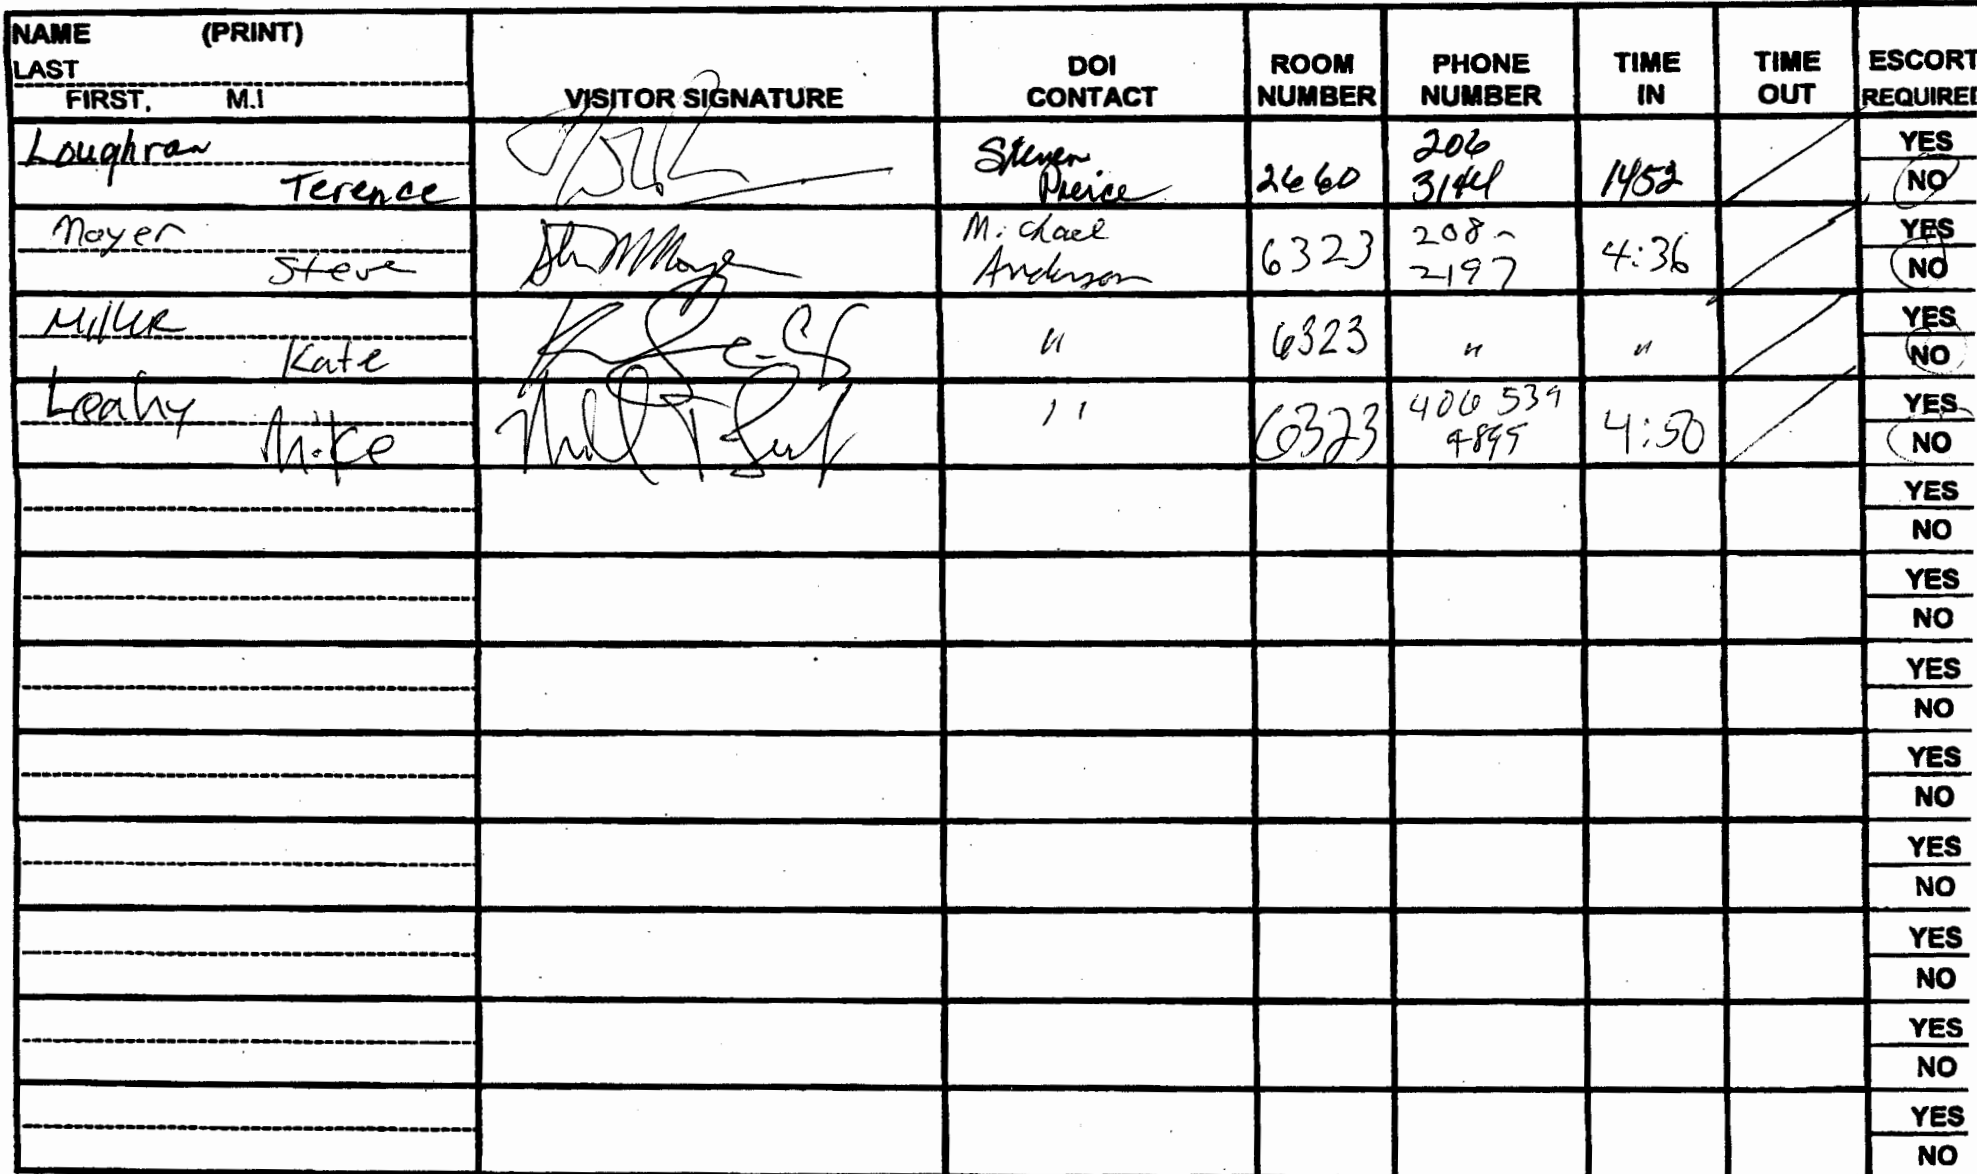 NAME (PRINT)
LAST
FIRST, M.I
VISITOR SIGNATURE
DOI
CONTACT
ROOM
NUMBER
PHONE
NUMBER
TIME
IN
TIME
OUT
ESCORT
REQUIRED
Loughran
Terence
Steven
2660
206
1452
YES
NO
Moyer
Steve
Michael
Anderson
6323
208-
2197
4:36
YES
NO
Miller
Kate
"
6323
"
"
YES
NO
Leahy
Mike
''
6323
406 539
4:50
YES
NO
YES
NO
YES
NO
YES
NO
YES
NO
YES
NO
YES
NO
YES
NO
YES
NO